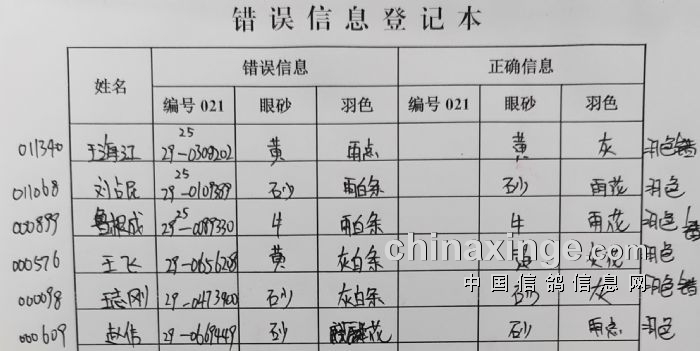 错误信息登记本
姓名 错误信息 正确信息
编号021 眼砂 羽色 编号021 眼砂 羽色
25
011340 王海江 29-0308202 黄 雨点 黄 灰 羽色错
25
011068 刘占民 29-0109389 砂 雨白条 砂 雨花 羽色
25
000899 鲁根成 29-0099330 牛 雨白条 牛 雨花 羽色错
chinaxinge.com
000576 王飞 29-0656268 黄 灰白条 黄 羽色
中国信鸽信息网
000098 29-0473900 砂 灰白条 砂 灰 羽色错
000609 赵伟 29-0669449 砂 花 砂 雨点 羽色